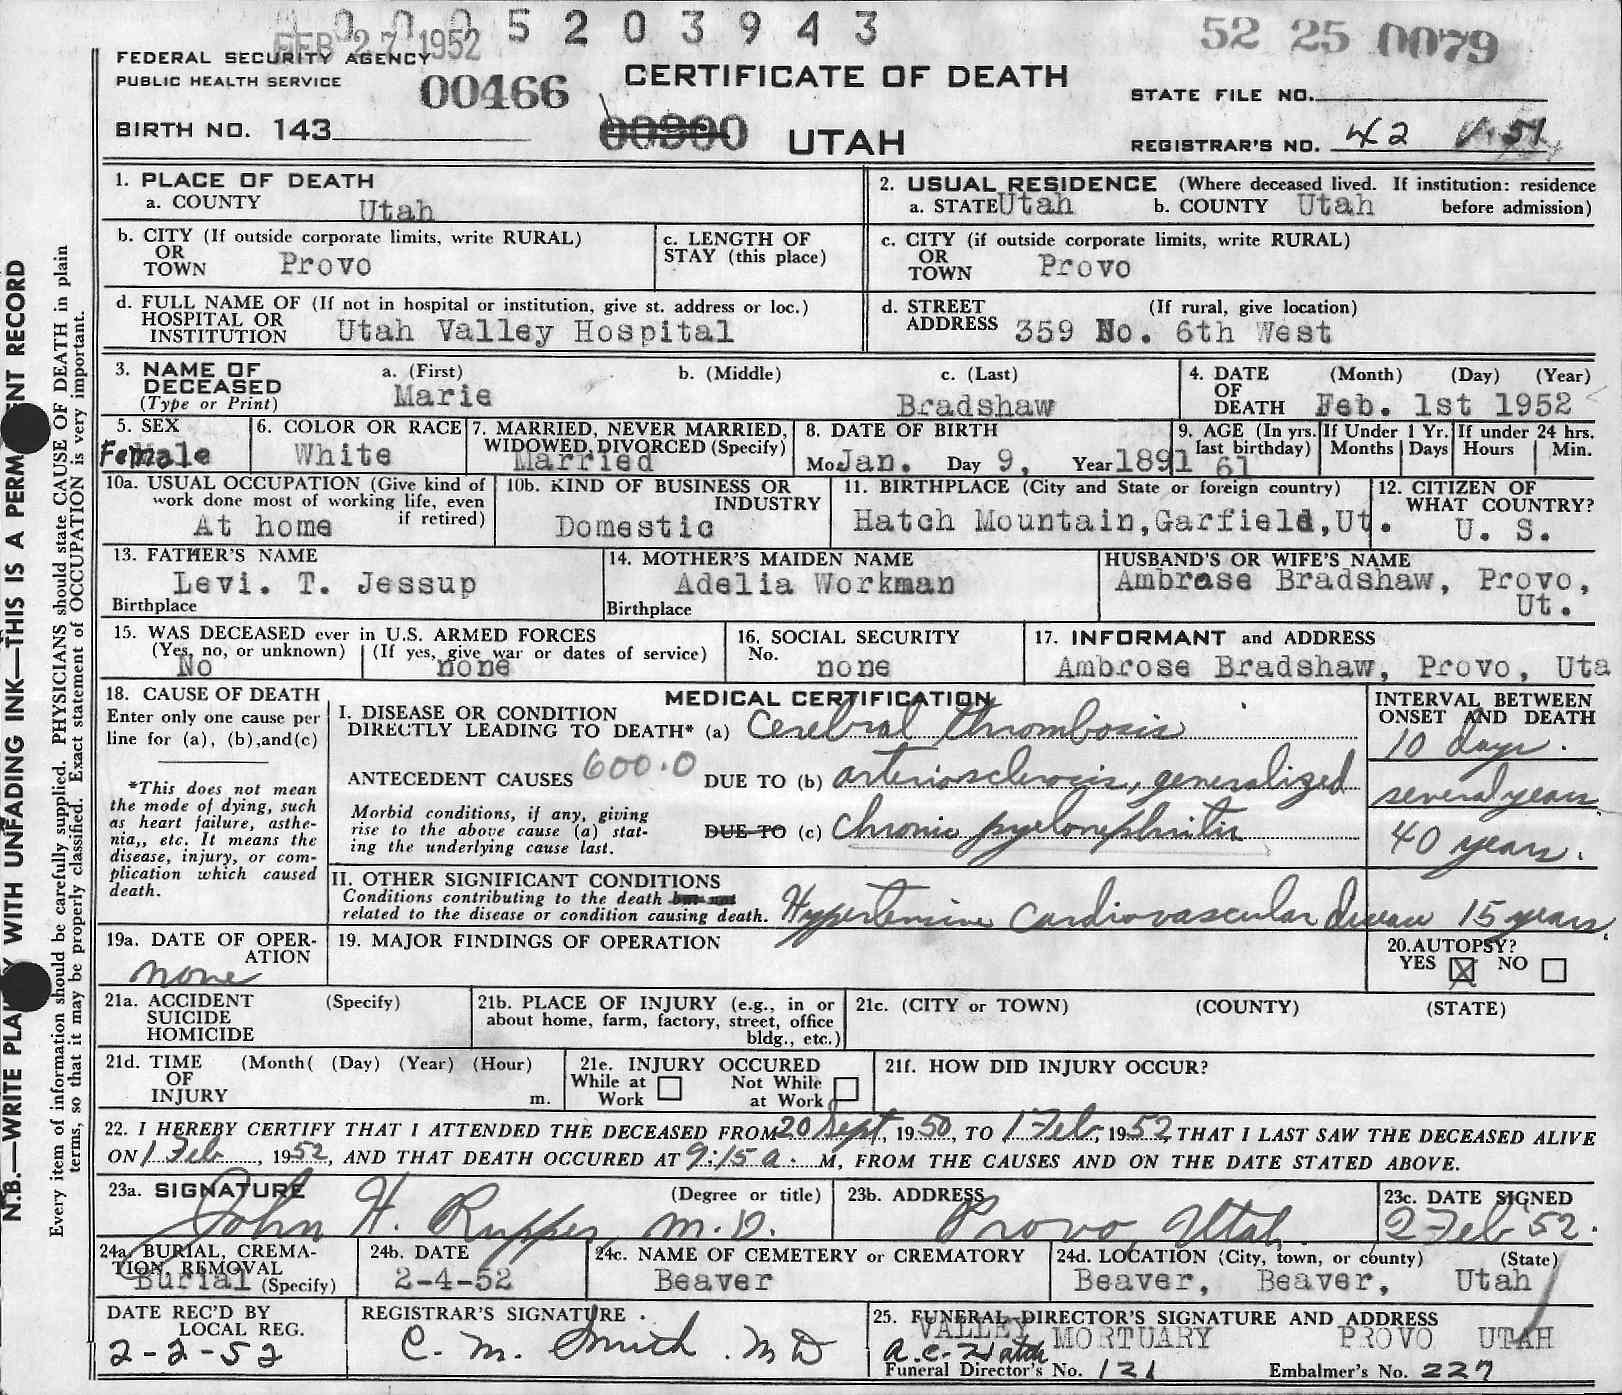 0 0 0 5 2 0 3 9 4 3
FEB 27 1952
52 25 0079
FEDERAL SECURITY AGENCY
PUBLIC HEALTH SERVICE
00466
CERTIFICATE OF DEATH
STATE FILE NO.
BIRTH NO. 143
UTAH
REGISTRAR'S NO. 42
1. PLACE OF DEATH
a. COUNTY Utah
2. USUAL RESIDENCE (Where deceased lived. If institution: residence before admission)
a. STATE Utah b. COUNTY Utah
b. CITY (If outside corporate limits, write RURAL)
OR
TOWN Provo
c. LENGTH OF
STAY (this place)
c. CITY (if outside corporate limits, write RURAL)
OR
TOWN Provo
d. FULL NAME OF (If not in hospital or institution, give st. address or loc.)
HOSPITAL OR
INSTITUTION Utah Valley Hospital
d. STREET (If rural, give location)
ADDRESS 359 No. 6th West
3. NAME OF
DECEASED
(Type or Print)
a. (First) b. (Middle) c. (Last)
Marie Bradshaw
4. DATE (Month) (Day) (Year)
OF
DEATH Feb. 1st 1952
5. SEX
Female
6. COLOR OR RACE
White
7. MARRIED, NEVER MARRIED,
WIDOWED, DIVORCED (Specify)
Married
8. DATE OF BIRTH
Mo. Jan. Day 9, Year 1891
9. AGE (In yrs. last birthday)
61
If Under 1 Yr.
Months Days
If under 24 hrs.
Hours Min.
10a. USUAL OCCUPATION (Give kind of
work done most of working life, even
if retired)
At home
10b. KIND OF BUSINESS OR
INDUSTRY
Domestic
11. BIRTHPLACE (City and State or foreign country)
Hatch Mountain,Garfield,Ut.
12. CITIZEN OF
WHAT COUNTRY?
U. S.
13. FATHER'S NAME
Levi. T. Jessup
Birthplace
14. MOTHER'S MAIDEN NAME
Adelia Workman
Birthplace
HUSBAND'S OR WIFE'S NAME
Ambrose Bradshaw, Provo,
Ut.
15. WAS DECEASED ever in U.S. ARMED FORCES
(Yes, no, or unknown) (If yes, give war or dates of service)
No none
16. SOCIAL SECURITY
No. none
17. INFORMANT and ADDRESS
Ambrose Bradshaw, Provo, Uta
18. CAUSE OF DEATH
Enter only one cause per
line for (a), (b),and(c)
*This does not mean
the mode of dying, such
as heart failure, asthe-
nia,, etc. It means the
disease, injury, or com-
plication which caused
death.
MEDICAL CERTIFICATION
INTERVAL BETWEEN
ONSET AND DEATH
I. DISEASE OR CONDITION
DIRECTLY LEADING TO DEATH* (a) Cerebral thrombosis
10 days.
ANTECEDENT CAUSES 600.0 DUE TO (b) arteriosclerosis, generalized
several years
Morbid conditions, if any, giving
rise to the above cause (a) stat-
ing the underlying cause last.
DUE TO (c) Chronic pyelonephritis
40 years.
II. OTHER SIGNIFICANT CONDITIONS
Conditions contributing to the death but not
related to the disease or condition causing death.
Hypertensive cardiovascular disease 15 years.
19a. DATE OF OPER-
ATION
none
19. MAJOR FINDINGS OF OPERATION
20.AUTOPSY?
YES X NO
21a. ACCIDENT (Specify)
SUICIDE
HOMICIDE
21b. PLACE OF INJURY (e.g., in or
about home, farm, factory, street, office
bldg., etc.)
21c. (CITY or TOWN) (COUNTY) (STATE)
21d. TIME (Month( (Day) (Year) (Hour)
OF
INJURY m.
21e. INJURY OCCURED
While at Work Not While at Work
21f. HOW DID INJURY OCCUR?
22. I HEREBY CERTIFY THAT I ATTENDED THE DECEASED FROM 20 Sept, 1950, TO 1 Feb, 1952, THAT I LAST SAW THE DECEASED ALIVE
ON 1 Feb, 1952, AND THAT DEATH OCCURED AT 9:15 a. M, FROM THE CAUSES AND ON THE DATE STATED ABOVE.
23a. SIGNATURE (Degree or title)
John H. Rupper, M.D.
23b. ADDRESS
Provo, Utah
23c. DATE SIGNED
2 Feb 52.
24a. BURIAL, CREMA-
TION, REMOVAL
Burial (Specify)
24b. DATE
2-4-52
24c. NAME OF CEMETERY or CREMATORY
Beaver
24d. LOCATION (City, town, or county) (State)
Beaver, Beaver, Utah
DATE REC'D BY
LOCAL REG.
2-2-52
REGISTRAR'S SIGNATURE
C. M. Smith. MD
25. FUNERAL DIRECTOR'S SIGNATURE AND ADDRESS
VALLEY MORTUARY PROVO UTAH
A. C. Hatch
Funeral Director's No. 121 Embalmer's No. 227
N.B.—WRITE PLAINLY WITH UNFADING INK—THIS IS A PERMANENT RECORD
Every item of information should be carefully supplied. PHYSICIANS should state CAUSE OF DEATH in plain
terms, so that it may be properly classified. Exact statement of OCCUPATION is very important.